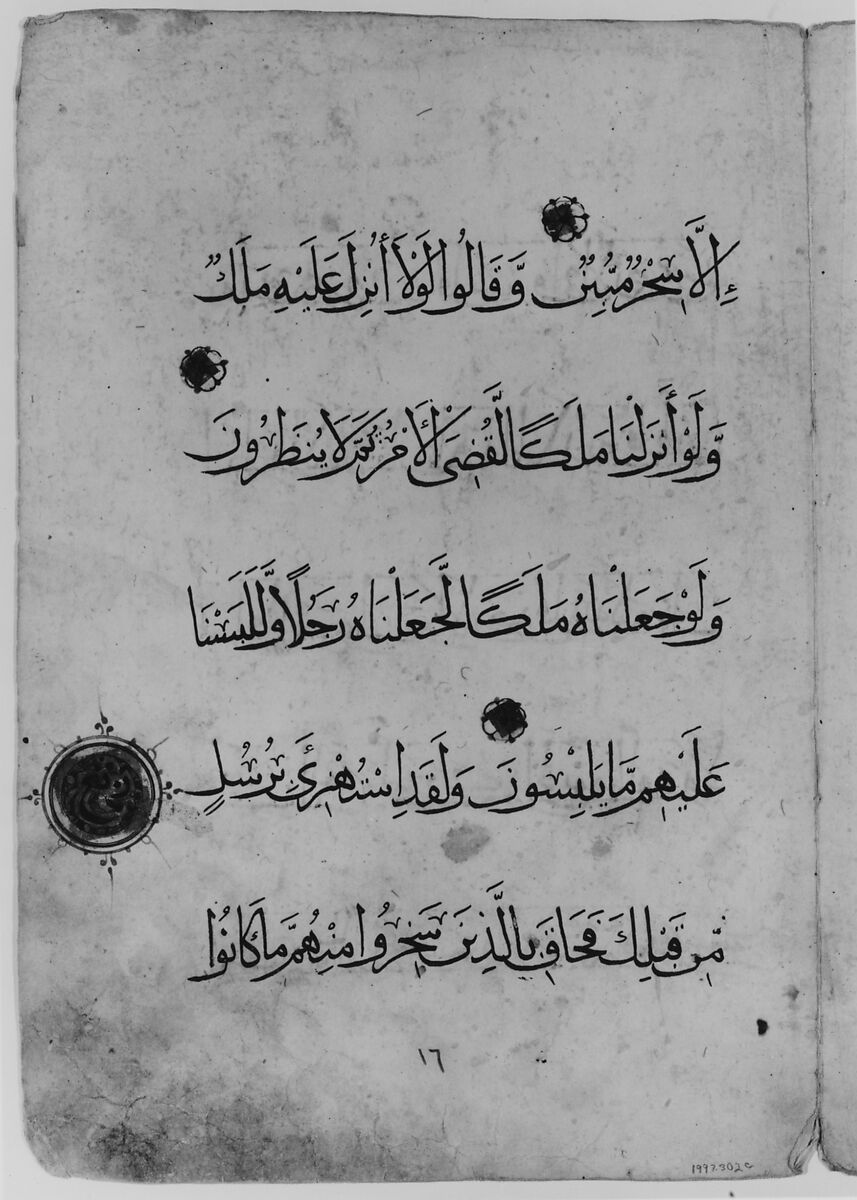 إِلَّا سِحْرٌ مُّبِينٌ وَّقَالُوا لَوْلَا أُنزِلَ عَلَيْهِ مَلَكٌ
وَّلَوْ أَنزَلْنَا مَلَكًا لَّقُضِىَ الْأَمْرُ ثُمَّ لَا يُنظَرُونَ
وَلَوْ جَعَلْنَاهُ مَلَكًا لَّجَعَلْنَاهُ رَجُلًا وَّلَلَبَسْنَا
عَلَيْهِم مَّا يَلْبِسُونَ وَلَقَدِ اسْتُهْزِئَ بِرُسُلٍ
مِّن قَبْلِكَ فَحَاقَ بِالَّذِينَ سَخِرُوا مِنْهُم مَّا كَانُوا
١٦
1997.302c